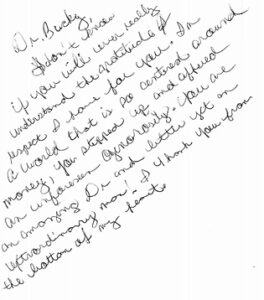 Dr. Bucky,
I don't know
if you will ever really
understand the gratitude &
respect I have for you. In
a world that is so centred around
money, you stepped up and offered
an unforseen generosity. You are
an amazing Dr and better yet an
extraordinary man. I thank you from
the bottom of my heart.